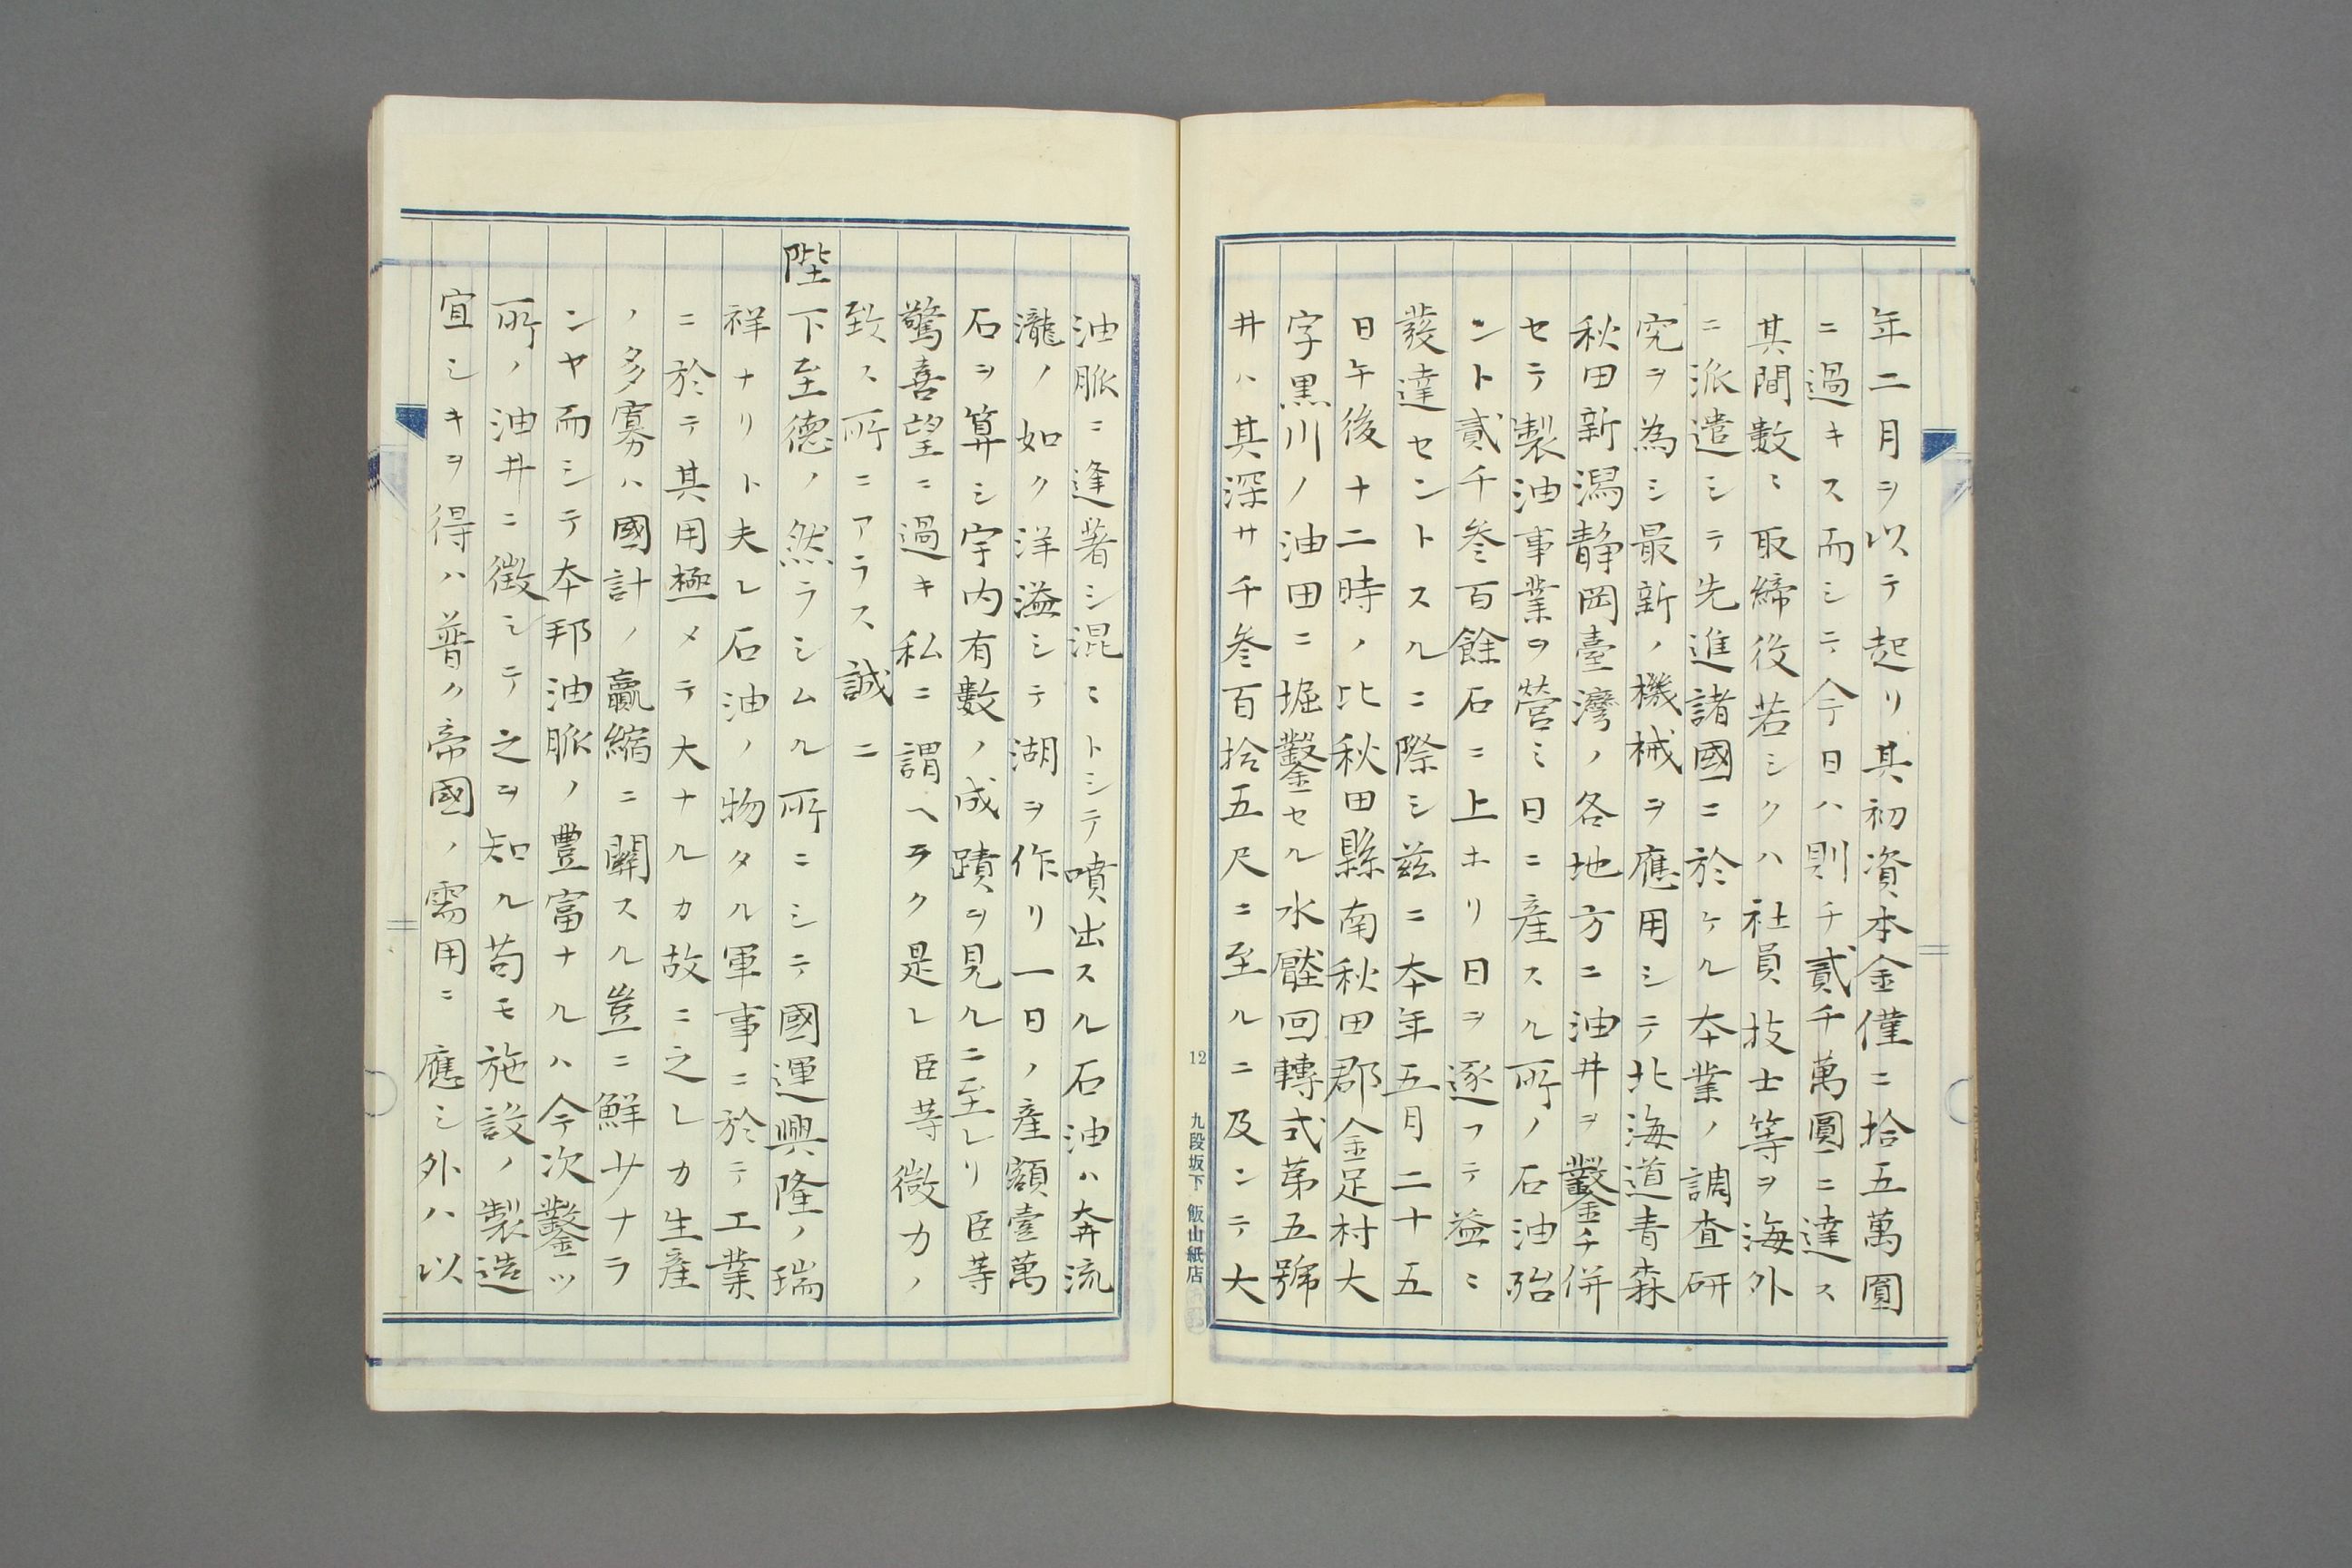 年二月ヲ以テ起リ其初資本金僅ニ拾五萬圓
ニ過キス而シテ今日ハ則チ貳千萬圓ニ達ス
其間數〻取締役若シクハ社員技士等ヲ海外
ニ派遣シテ先進諸國ニ於ケル本業ノ調査研
究ヲ為シ最新ノ機械ヲ應用シテ北海道青森
秋田新潟靜岡臺灣ノ各地方ニ油井ヲ鑿チ併
セテ製油事業ヲ營ミ日ニ産スル所ノ石油殆
ント貳千叄百餘石ニ上ホリ日ヲ逐フテ益〻
發達セントスルニ際シ茲ニ本年五月二十五
日午後十二時ノ比秋田縣南秋田郡金足村大
字黒川ノ油田ニ堀鑿セル水壓回轉式第五號
井ハ其深サ千叄百拾五尺ニ至ルニ及ンテ大
油脈ニ逢著シ混〻トシテ噴出スル石油ハ奔流
瀧ノ如ク洋溢シテ湖ヲ作リ一日ノ産額壹萬
石ヲ算シ宇内有數ノ成蹟ヲ見ルニ至レリ臣等
驚喜望ニ過キ私ニ謂ヘラク是レ臣等微力ノ
致ス所ニアラス誠ニ
陛下至德ノ然ラシムル所ニシテ國運興隆ノ瑞
祥ナリト夫レ石油ノ物タル軍事ニ於テ工業
ニ於テ其用極メテ大ナルカ故ニ之レカ生産
ノ多寡ハ國計ノ贏縮ニ關スル豈ニ鮮少ナラ
ンヤ而シテ本邦油脈ノ豐富ナルハ今次鑿ツ
所ノ油井ニ徴シテ之ヲ知ル苟モ施設ノ製造
宜シキヲ得ハ普ク帝國ノ需用ニ應シ外ハ以
12
九段坂下 飯山紙店